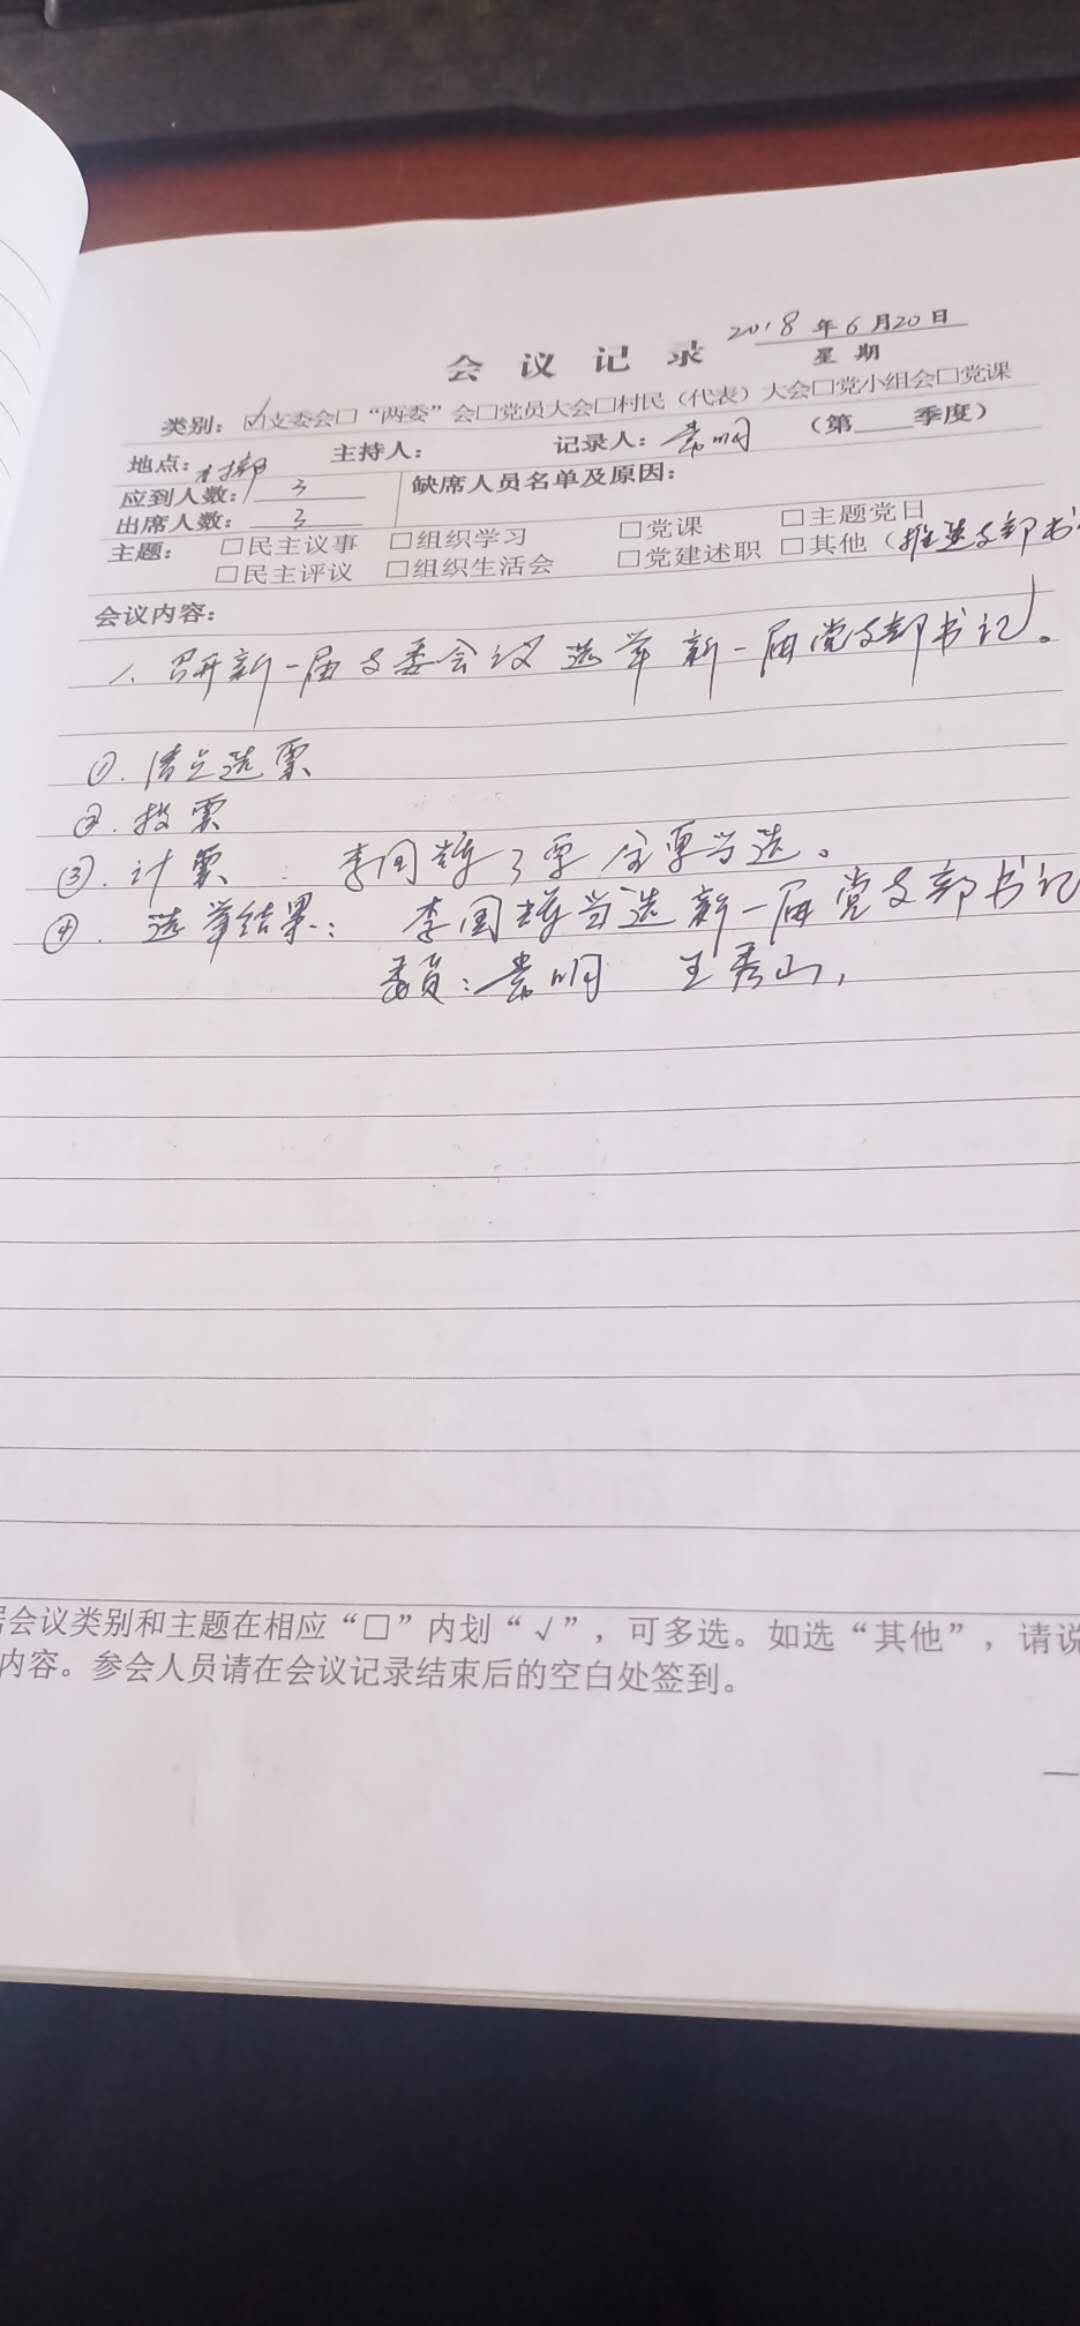 2018年6月20日
会议记录 星期
类别：☑支委会□“两委”会□党员大会□村民（代表）大会□党小组会□党课
地点：村部 主持人： 记录人：常明 （第 季度）
应到人数：3 缺席人员名单及原因：
出席人数：3
主题： □民主议事 □组织学习 □党课 □主题党日
□民主评议 □组织生活会 □党建述职 □其他（推选支部书
会议内容：
1、召开新一届支委会议选举新一届党支部书记。
①.清点选票
②.投票
③.计票：李国 3票 全票当选。
④.选举结果：李国 当选新一届党支部书记
委员：常明 王秀山，
会议类别和主题在相应“□”内划“√”，可多选。如选“其他”，请说
内容。参会人员请在会议记录结束后的空白处签到。